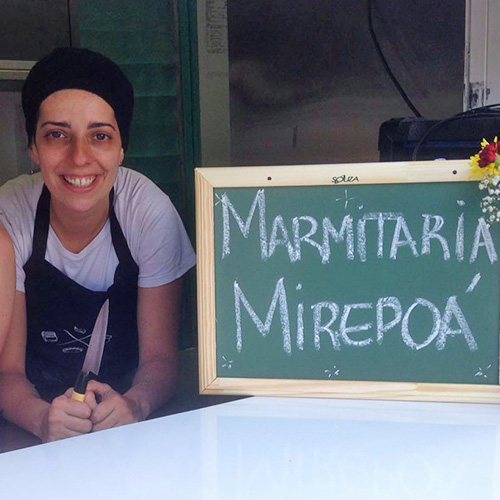 SOUZA
MARMITARIA
MIREPOÁ